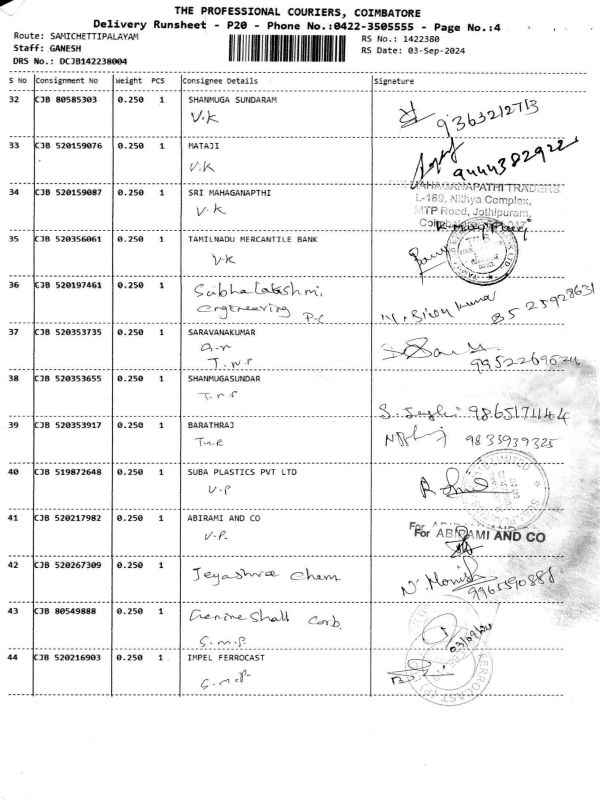 THE PROFESSIONAL COURIERS, COIMBATORE
Delivery Runsheet - P20 - Phone No.:0422-3505555 - Page No.:4
Route: SAMICHETTIPALAYAM
RS No.: 1422380
Staff: GANESH
RS Date: 03-Sep-2024
DRS No.: DCJB142238004
S No Consignment No Weight PCS Consignee Details Signature
32 CJB 80585303 0.250 1 SHANMUGA SUNDARAM
V.K
9363212713
33 CJB 520159076 0.250 1 MATAJI
V.K
9444382922
34 CJB 520159087 0.250 1 SRI MAHAGANAPTHI
V.K
MAHAGANAPATHI TRADERS
L-189, Nithya Complex,
MTP Road, Jothipuram,
35 CJB 520356061 0.250 1 TAMILNADU MERCANTILE BANK
V.K
36 CJB 520197461 0.250 1 Subha Lakshmi
engineering P.C
8525928631
37 CJB 520353735 0.250 1 SARAVANAKUMAR
T.N.P
38 CJB 520353655 0.250 1 SHANMUGASUNDAR
T.N.P
9865171144
39 CJB 520353917 0.250 1 BARATHRAJ
T.N.P
9833939325
40 CJB 519872648 0.250 1 SUBA PLASTICS PVT LTD
V.P
41 CJB 520217982 0.250 1 ABIRAMI AND CO
V.P.
For ABIRAMI AND CO
42 CJB 520267309 0.250 1 Jeyashree Chem
N. Monish
43 CJB 80549888 0.250 1 Corb.
S.M.P.
03/09/24
44 CJB 520216903 0.250 1 IMPEL FERROCAST
S.M.P